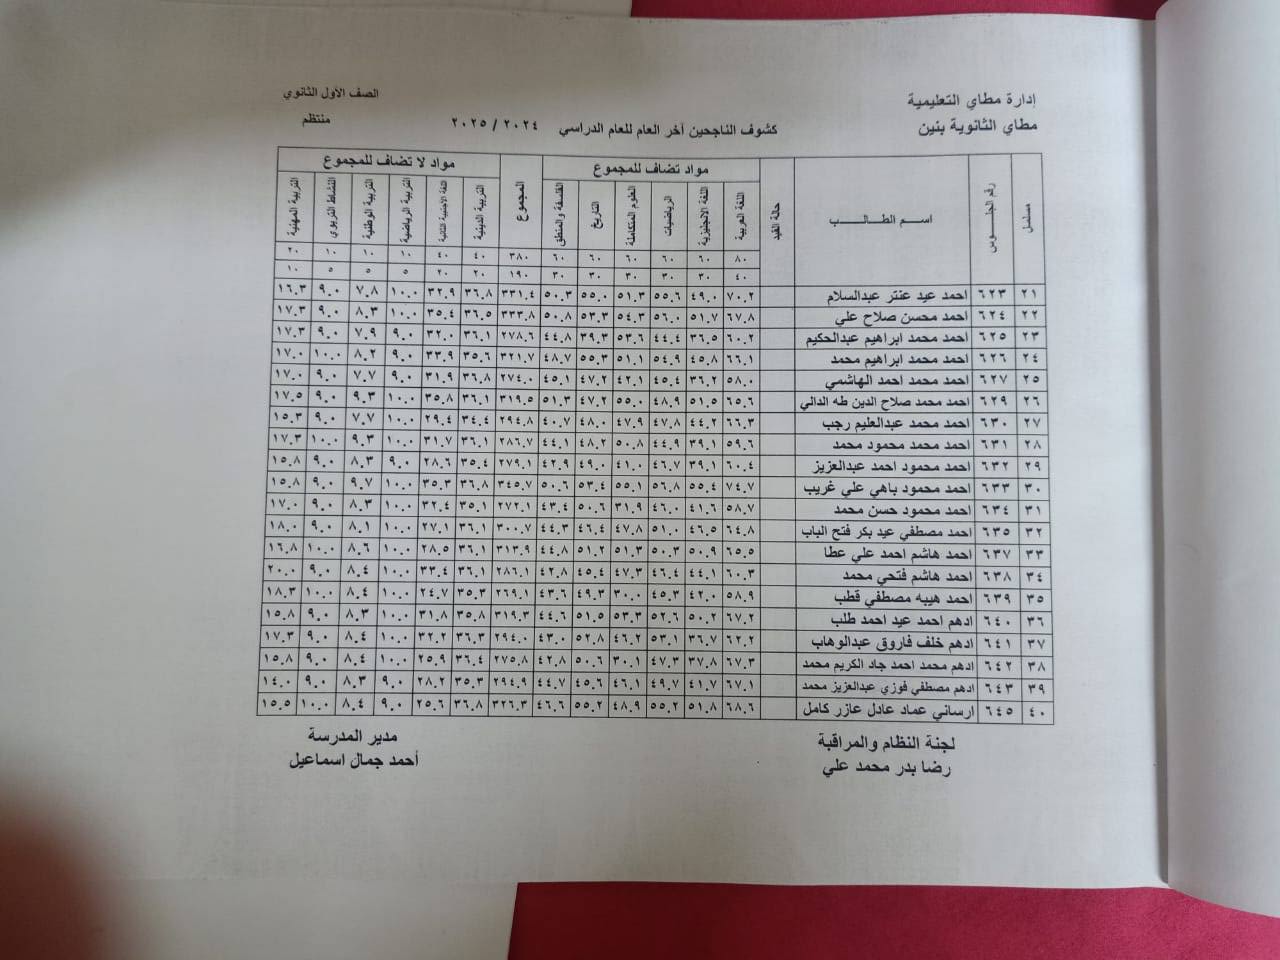 إدارة مطاي التعليمية
مطاي الثانوية بنين
كشوف الناجحين آخر العام للعام الدراسي ٢٠٢٤ / ٢٠٢٥
الصف الأول الثانوي
منتظم
مواد تضاف للمجموع مواد لا تضاف للمجموع
مسلسل رقم الجلـــوس اســـم الطـالــــب حالة القيد اللغة العربية اللغة الانجليزية الرياضيات العلوم المتكاملة التاريخ الفلسفة والمنطق المجموع التربية الدينية اللغة الأجنبية الثانية التربية الرياضية التربية الوطنية النشاط التربوي التربية المهنية
٨٠ ٦٠ ٦٠ ٦٠ ٦٠ ٦٠ ٣٨٠ ٤٠ ٤٠ ١٠ ١٠ ١٠ ٢٠
٤٠ ٣٠ ٣٠ ٣٠ ٣٠ ٣٠ ١٩٠ ٢٠ ٢٠ ٥ ٥ ٥ ١٠
٢١ ٦٢٣ احمد عيد عنتر عبدالسلام ٧٠.٢ ٤٩.٠ ٥٥.٦ ٥١.٣ ٥٥.٠ ٥٠.٣ ٣٣١.٤ ٣٦.٨ ٣٢.٩ ١٠.٠ ٧.٨ ٩.٠ ١٦.٣
٢٢ ٦٢٤ احمد محسن صلاح علي ٦٧.٨ ٥١.٧ ٥٦.٠ ٥٤.٣ ٥٣.٣ ٥٠.٨ ٣٣٣.٨ ٣٦.٥ ٣٥.٤ ١٠.٠ ٨.٣ ٩.٠ ١٧.٣
٢٣ ٦٢٥ احمد محمد ابراهيم عبدالحكيم ٦٠.٢ ٣٦.٥ ٤٤.٤ ٥٣.٦ ٣٩.٣ ٤٤.٨ ٢٧٨.٦ ٣٦.١ ٣٢.٠ ٩.٠ ٧.٩ ٩.٠ ١٧.٣
٢٤ ٦٢٦ احمد محمد ابراهيم محمد ٦٦.١ ٤٥.٨ ٥٤.٩ ٥١.١ ٥٥.٣ ٤٨.٧ ٣٢١.٧ ٣٥.٦ ٣٣.٩ ٩.٠ ٨.٢ ١٠.٠ ١٧.٠
٢٥ ٦٢٧ احمد محمد احمد الهاشمي ٥٨.٠ ٣٦.٢ ٤٥.٤ ٤٢.١ ٤٧.٢ ٤٥.١ ٢٧٤.٠ ٣٦.٨ ٣١.٩ ٩.٠ ٧.٧ ٩.٠ ١٧.٠
٢٦ ٦٢٩ احمد محمد صلاح الدين طه الدالي ٦٥.٦ ٥١.٥ ٤٨.٩ ٥٥.٠ ٤٧.٢ ٥١.٣ ٣١٩.٥ ٣٦.١ ٣٥.٨ ١٠.٠ ٩.٣ ٩.٠ ١٧.٥
٢٧ ٦٣٠ احمد محمد عبدالعليم رجب ٦٦.٣ ٤٤.٢ ٤٧.٨ ٤٧.٩ ٤٨.٠ ٤٠.٧ ٢٩٤.٨ ٣٤.٤ ٢٩.٤ ١٠.٠ ٧.٧ ٩.٠ ١٥.٣
٢٨ ٦٣١ احمد محمد محمود محمد ٥٩.٦ ٣٩.١ ٤٤.٩ ٥٠.٨ ٤٨.٢ ٤٤.١ ٢٨٦.٧ ٣٦.١ ٣١.٧ ١٠.٠ ٩.٣ ١٠.٠ ١٧.٣
٢٩ ٦٣٢ احمد محمود احمد عبدالعزيز ٦٠.٤ ٣٩.١ ٤٦.٧ ٤١.٠ ٤٩.٠ ٤٢.٩ ٢٧٩.١ ٣٥.٤ ٢٨.٦ ٩.٠ ٨.٣ ٩.٠ ١٥.٨
٣٠ ٦٣٣ احمد محمود باهي علي غريب ٧٤.٧ ٥٥.٤ ٥٦.٨ ٥٥.١ ٥٣.٤ ٥٠.٦ ٣٤٥.٧ ٣٦.٨ ٣٥.٣ ١٠.٠ ٩.٧ ٩.٠ ١٥.٨
٣١ ٦٣٤ احمد محمود حسن محمد ٥٨.٧ ٤١.٦ ٤٦.٠ ٣١.٩ ٥٠.٦ ٤٣.٤ ٢٧٢.١ ٣٥.١ ٣٢.٤ ١٠.٠ ٨.٣ ٩.٠ ١٧.٠
٣٢ ٦٣٥ احمد مصطفي عيد بكر فتح الباب ٦٤.٨ ٤٦.٥ ٥١.٠ ٤٧.٨ ٤٦.٤ ٤٤.٣ ٣٠٠.٧ ٣٦.١ ٢٧.١ ١٠.٠ ٨.١ ٩.٠ ١٨.٠
٣٣ ٦٣٧ احمد هاشم احمد علي عطا ٦٥.٥ ٥٠.٩ ٥٠.٣ ٥١.٣ ٥١.٢ ٤٤.٨ ٣١٣.٩ ٣٦.١ ٢٨.٥ ١٠.٠ ٨.٦ ١٠.٠ ١٦.٨
٣٤ ٦٣٨ احمد هاشم فتحي محمد ٦٠.٣ ٤٤.١ ٤٦.٤ ٤٧.٣ ٤٥.٤ ٤٢.٨ ٢٨٦.١ ٣٦.١ ٣٣.٤ ١٠.٠ ٨.٤ ٩.٠ ٢٠.٠
٣٥ ٦٣٩ احمد هيبه مصطفي قطب ٥٨.٩ ٤٢.٠ ٤٥.٣ ٣٠.٠ ٤٩.٣ ٤٣.٦ ٢٦٩.١ ٣٥.٣ ٢٤.٧ ١٠.٠ ٨.٤ ١٠.٠ ١٨.٣
٣٦ ٦٤٠ ادهم احمد عيد احمد طلب ٦٧.٢ ٥٠.٢ ٥٢.٦ ٥٣.٣ ٥١.٥ ٤٤.٦ ٣١٩.٣ ٣٥.٨ ٣١.٨ ١٠.٠ ٨.٣ ٩.٠ ١٥.٨
٣٧ ٦٤١ ادهم خلف فاروق عبدالوهاب ٦٢.٢ ٣٦.٧ ٥٣.١ ٤٦.٢ ٥٢.٨ ٤٣.٠ ٢٩٤.٠ ٣٦.٣ ٣٢.٢ ١٠.٠ ٨.٤ ٩.٠ ١٧.٣
٣٨ ٦٤٢ ادهم محمد احمد جاد الكريم محمد ٦٧.٣ ٣٧.٨ ٤٧.٣ ٣٠.١ ٥٠.٦ ٤٢.٨ ٢٧٥.٨ ٣٦.٤ ٢٥.٩ ١٠.٠ ٨.٤ ٩.٠ ١٥.٨
٣٩ ٦٤٣ ادهم مصطفي فوزي عبدالعزيز محمد ٦٧.١ ٤١.٧ ٤٩.٧ ٤٦.١ ٤٥.٦ ٤٤.٧ ٢٩٤.٩ ٣٥.٣ ٢٨.٢ ٩.٠ ٨.٣ ٩.٠ ١٤.٠
٤٠ ٦٤٥ ارساني عماد عادل عازر كامل ٦٨.٦ ٥١.٨ ٥٥.٢ ٤٨.٩ ٥٥.٢ ٤٦.٦ ٣٢٦.٣ ٣٦.٨ ٢٥.٦ ٩.٠ ٨.٤ ١٠.٠ ١٥.٥
لجنة النظام والمراقبة
رضا بدر محمد علي
مدير المدرسة
أحمد جمال اسماعيل